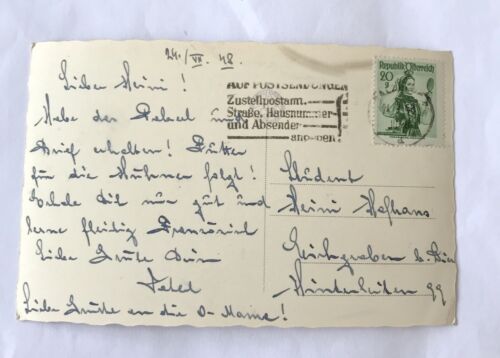 24./VII. 48.
Liebe Heini!
Habe das Packerl und
Brief erhalten! Futter
für die Hühner folgt!
Erhole dich nur gut und
lerne fleißig Französisch
Liebe Grüße Dein
Liebe Grüße an die O-Mama!
AUF POSTSENDUNGEN
Zustellpostamt,
Straße, Hausnummer
und Absender
angeben!
Republik Österreich
20
g
Student
Heini
b. Wien
Hinterleiten 99